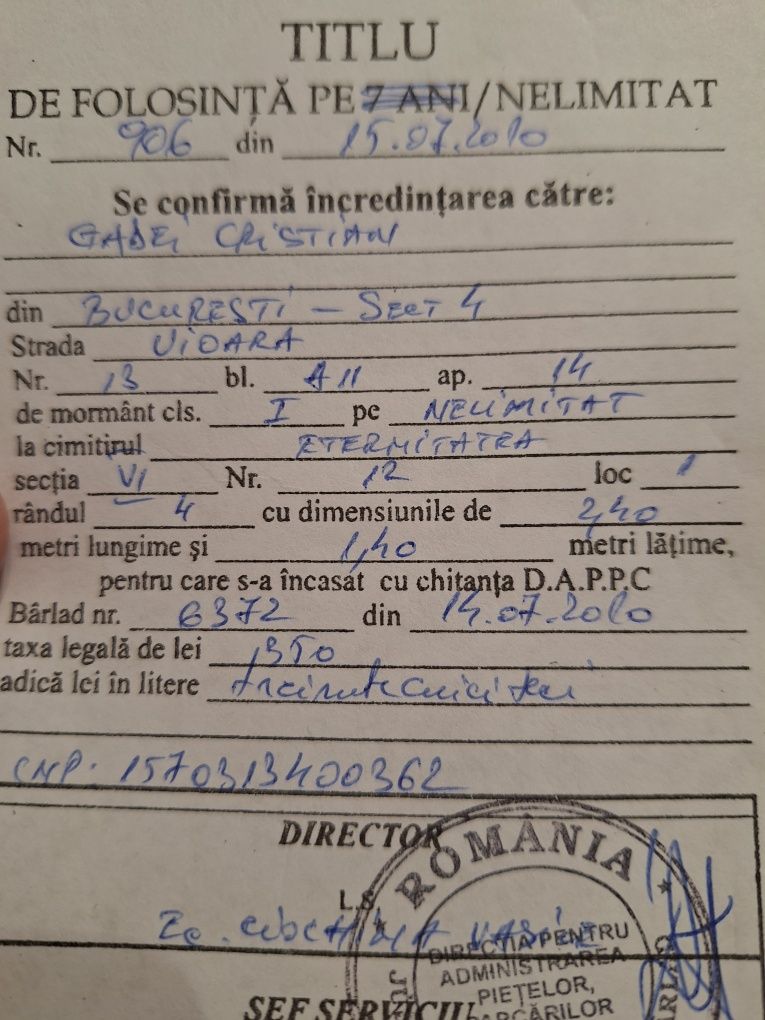 TITLU
DE FOLOSINȚĂ PE 7 ANI/NELIMITAT
Nr. 906 din 15.07.2010
Se confirmă încredințarea către:
GABEI CRISTIAN
din BUCUREȘTI - SECT 4
Strada VIOARA
Nr. 13 bl. A11 ap. 14
de mormânt cls. I pe NELIMITAT
la cimitirul ETERNITATEA
secția VI Nr. 12 loc 1
rândul 4 cu dimensiunile de 2,40
metri lungime și 1,40 metri lățime,
pentru care s-a încasat cu chitanța D.A.P.P.C
Bârlad nr. 6372 din 14.07.2010
taxa legală de lei 350
adică lei în litere
CNP. 1570313400362
DIRECTOR
L.S.
ROMÂNIA
DIRECȚIA PENTRU
ADMINISTRAREA
PIEȚELOR,
PARCĂRILOR
ȘEF SERVICIU